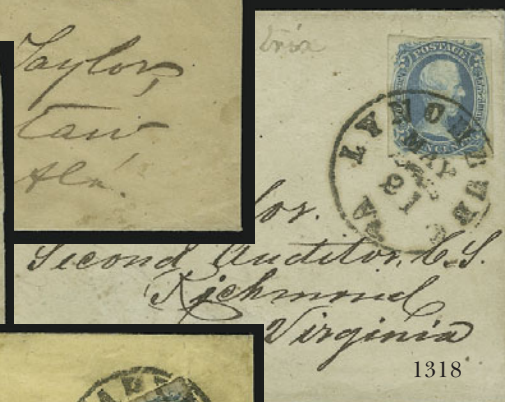 Taylor,
Ala.
POSTAGE
LYNCHBURG
VA
MAY
21
or.
Second Auditor, C.S.
Richmond
Virginia
1318